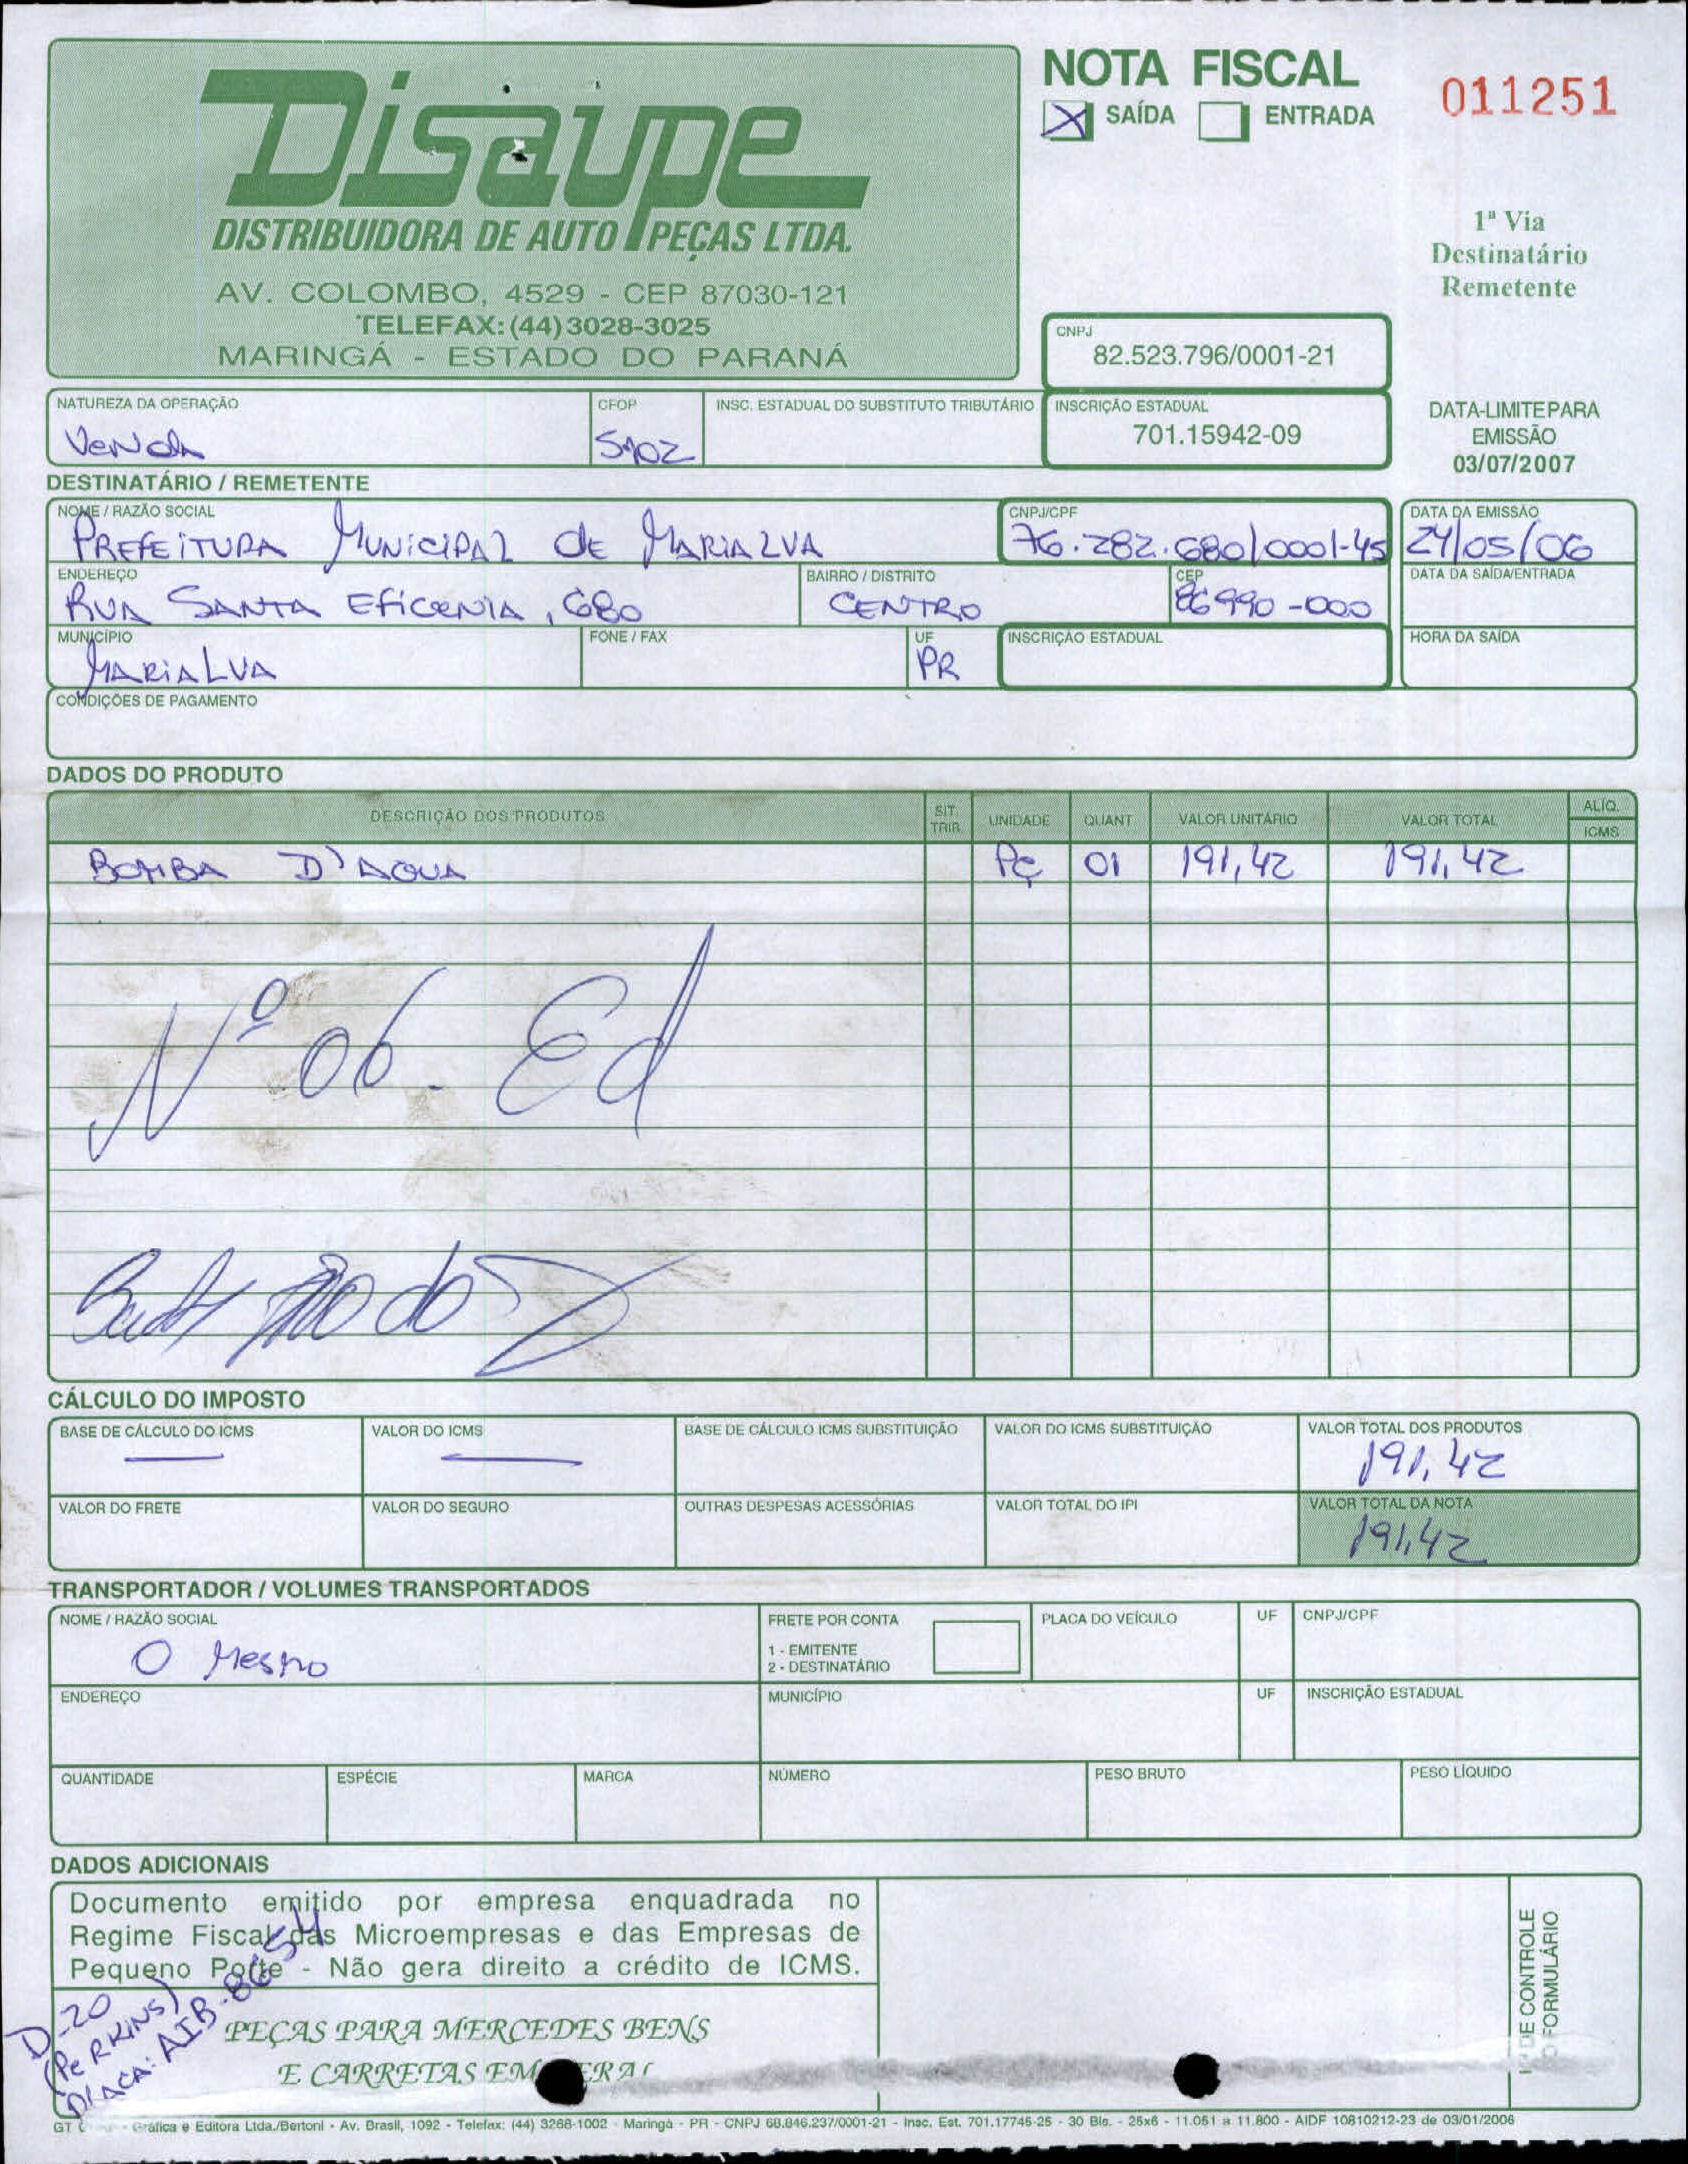 Disaupe
DISTRIBUIDORA DE AUTO PEÇAS LTDA.
AV. COLOMBO, 4529 - CEP 87030-121
TELEFAX: (44) 3028-3025
MARINGÁ - ESTADO DO PARANÁ
NOTA FISCAL
X SAÍDA ENTRADA
011251
1ª Via
Destinatário
Remetente
CNPJ
82.523.796/0001-21
NATUREZA DA OPERAÇÃO
Venda
CFOP
5102
INSC. ESTADUAL DO SUBSTITUTO TRIBUTÁRIO
INSCRIÇÃO ESTADUAL
701.15942-09
DATA-LIMITE PARA
EMISSÃO
03/07/2007
DESTINATÁRIO / REMETENTE
NOME / RAZÃO SOCIAL
PREFEITURA MUNICIPAL de MARIALVA
CNPJ/CPF
76.282.680/0001-45
DATA DA EMISSÃO
24/05/06
ENDEREÇO
RUA SANTA EFIGENIA, 680
BAIRRO / DISTRITO
CENTRO
CEP
86990-000
DATA DA SAÍDA/ENTRADA
MUNICÍPIO
MARIALVA
FONE / FAX
UF
PR
INSCRIÇÃO ESTADUAL
HORA DA SAÍDA
CONDIÇÕES DE PAGAMENTO
DADOS DO PRODUTO
DESCRIÇÃO DOS PRODUTOS SIT. TRIB. UNIDADE QUANT VALOR UNITÁRIO VALOR TOTAL ALÍQ. ICMS
BOMBA D'AGUA Pç 01 191,42 191,42
Nº 06. Ed
CÁLCULO DO IMPOSTO
BASE DE CÁLCULO DO ICMS
VALOR DO ICMS
BASE DE CÁLCULO ICMS SUBSTITUIÇÃO
VALOR DO ICMS SUBSTITUIÇÃO
VALOR TOTAL DOS PRODUTOS
191,42
VALOR DO FRETE
VALOR DO SEGURO
OUTRAS DESPESAS ACESSÓRIAS
VALOR TOTAL DO IPI
VALOR TOTAL DA NOTA
191,42
TRANSPORTADOR / VOLUMES TRANSPORTADOS
NOME / RAZÃO SOCIAL
O Mesmo
FRETE POR CONTA
1 - EMITENTE
2 - DESTINATÁRIO
PLACA DO VEÍCULO
UF
CNPJ/CPF
ENDEREÇO
MUNICÍPIO
UF
INSCRIÇÃO ESTADUAL
QUANTIDADE
ESPÉCIE
MARCA
NÚMERO
PESO BRUTO
PESO LÍQUIDO
DADOS ADICIONAIS
Documento emitido por empresa enquadrada no
Regime Fiscal das Microempresas e das Empresas de
Pequeno Porte - Não gera direito a crédito de ICMS.
D-20
(PERKINS)
PLACA: AIB-8654
PEÇAS PARA MERCEDES BENS
E CARRETAS EM GERAL
DE CONTROLE
O FORMULÁRIO
GT Gráfica e Editora Ltda./Bertoni - Av. Brasil, 1092 - Telefax: (44) 3268-1002 - Maringá - PR - CNPJ 68.846.237/0001-21 - Insc. Est. 701.17745-25 - 30 Bls. - 25x6 - 11.051 a 11.800 - AIDF 10810212-23 de 03/01/2006